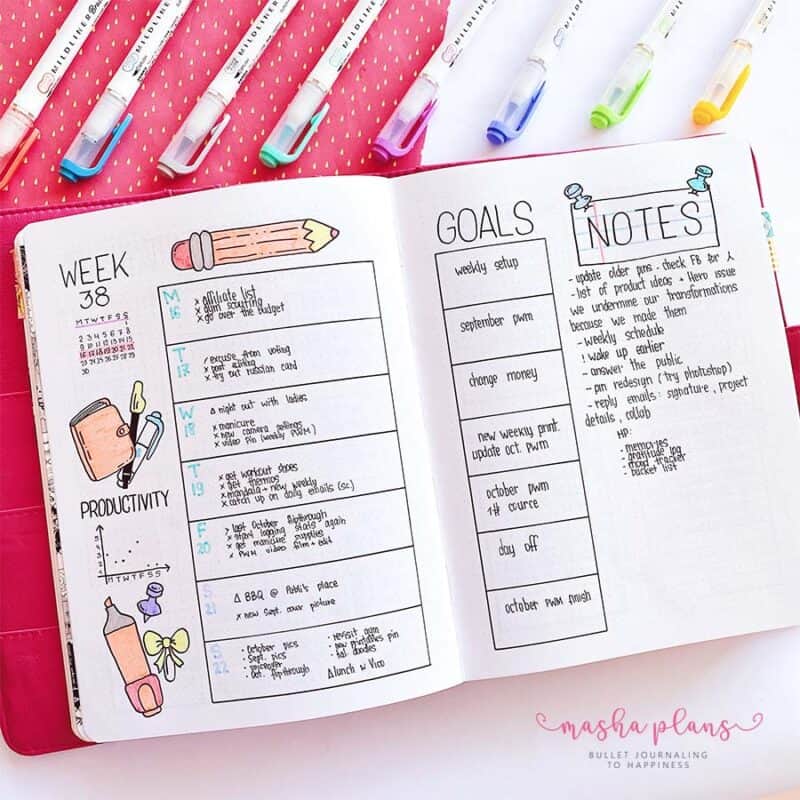 MILDLINER
MILDLINER
MILDLINER
MILDLINER
MILDLINER
MILDLINER
MILDLINER
WEEK
38
M T W T F S S
2 3 4 5 6 7 8
9 10 11 12 13 14 15
16 17 18 19 20 21 22
23 24 25 26 27 28 29
30
PRODUCTIVITY
5
4
3
2
1
M T W T F S S
M
16
x affiliate list
x gum scouting
x go over the budget
T
17
/ excuse from voting
x post editing
x try out russian card
W
18
Δ night out with ladies
x manicure
x new camera settings
x video pin (weekly PWM)
T
19
x get workout shoes
x get thermos
x mandala + new weekly
x catch up on daily emails (sc)
F
20
> last October flipthrough
x start logging stats again
x get manicure supplies
x PWM video film + edit
S
21
Δ BBQ @ Pabli's place
x new Sept. cover picture
S
22
- October pics
- Sept. pics
- Oct. flipthrough
- revisit gum
- new printables pin
- fall doodles
Δ lunch w Vico
GOALS
weekly setup
september pwm
change money
new weekly print.
update oct. pwm
october pwm
1# cource
day off
october pwm finish
NOTES
- update older pins - check FB for
- list of product ideas + Hero issue
we undermine our transformations
because we made them
- weekly schedule
! wake up earlier
- answer the public
- pin redesign (try photoshop)
- reply emails: signature, project
details, collab
MP:
- memories
- gratitude log
- mood tracker
- bucket list
masha plans
BULLET JOURNALING
TO HAPPINESS